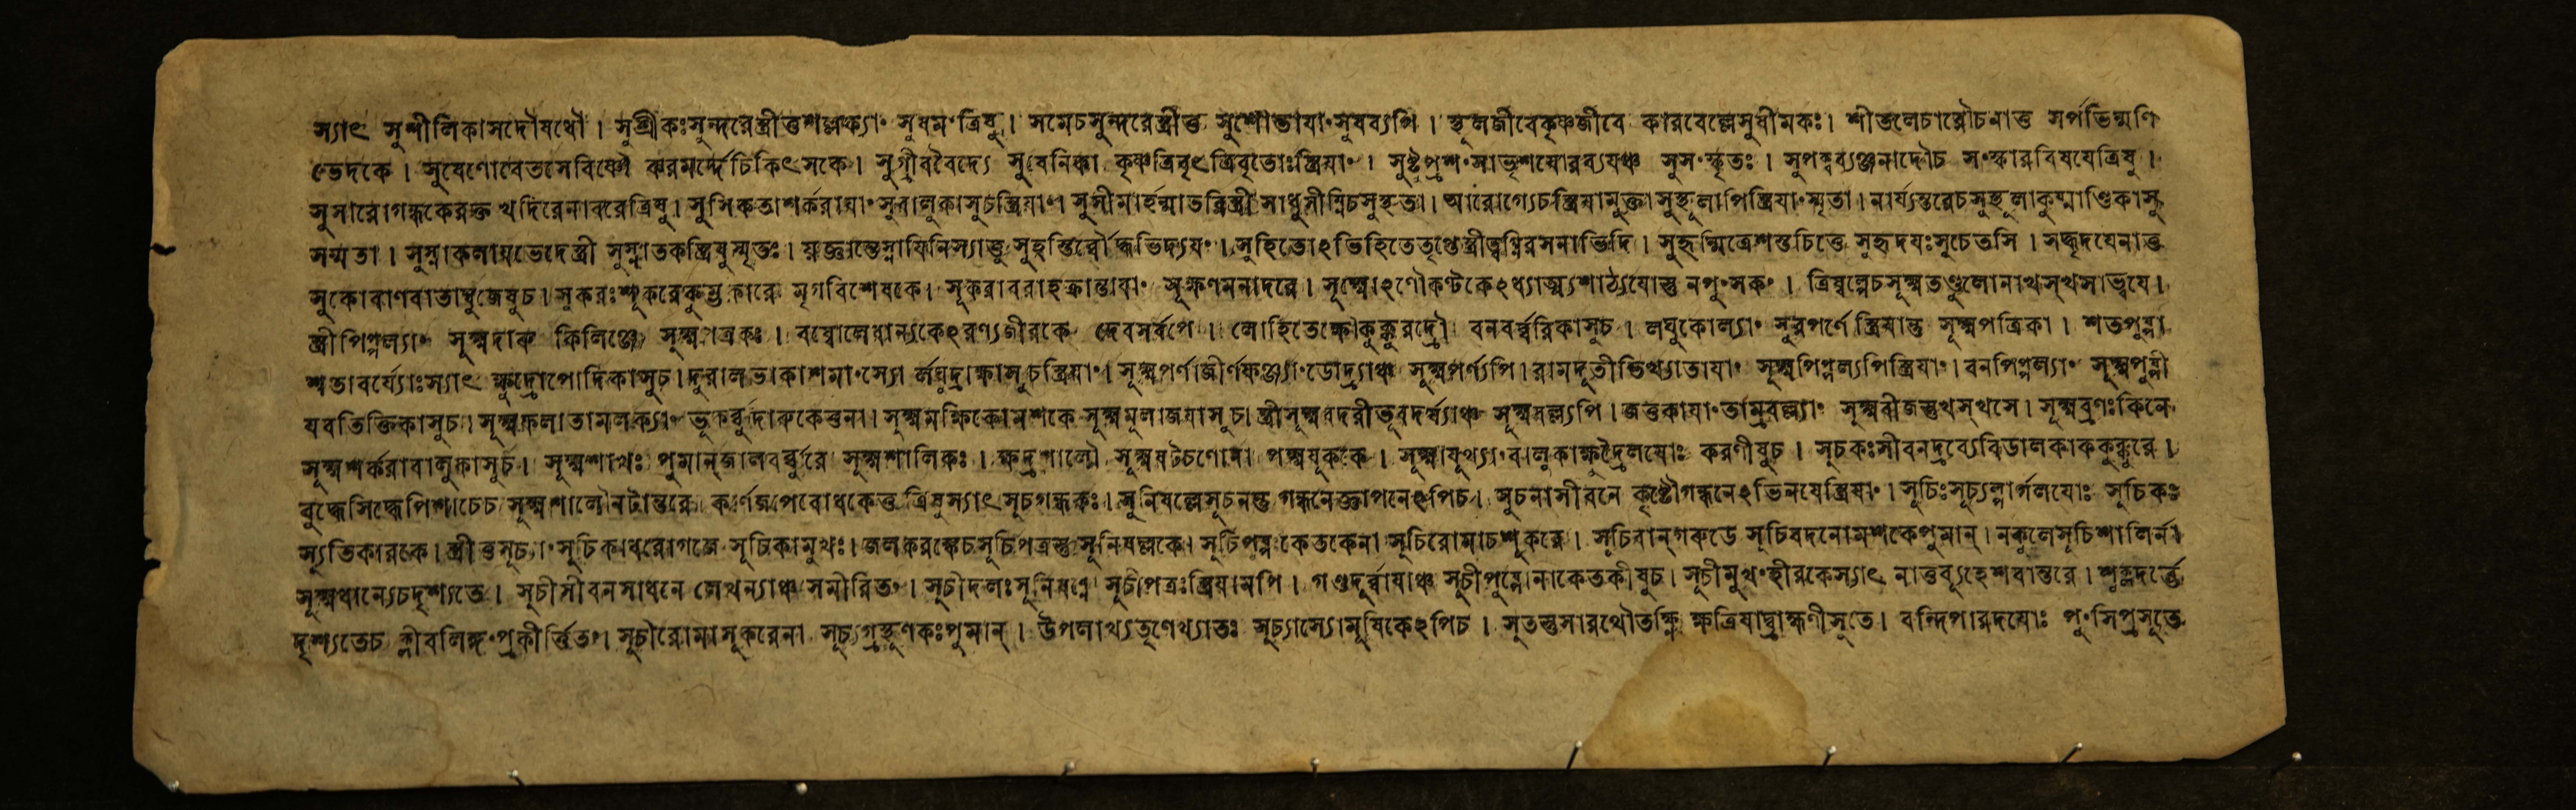 স্যাৎ সুশীলিকাসদৌষধৌ। সুশ্রীকঃসুন্দরেস্ত্রীত্তশল্লক্যাং সুষমংত্রিষু। সমেচসুন্দরেস্ত্রীত্ত সুশোভায়াংসুষব্যপি। স্থূলজীবেকৃষ্ণজীবে কারবেল্লেসুষীমকঃ। শীতলেচারৌচনাত্ত সর্পভিন্মণি
ভেদকে। সুষেণোবেতসেবিষ্ণৌ করমর্দ্দেচিকিৎসকে। সুগ্রীববৈদ্যে সুষেনিকা কৃষ্ণত্রিবৃৎত্রিবৃতোঃস্ত্রিয়াং। সুষ্টুপ্রশংসাভৃশয়োরব্যয়ঞ্চ সুসংস্কৃতঃ। সুপক্বব্যঞ্জনাদৌচ সংস্কারবিষয়েত্রিষু।
সুসারোগন্ধকেরক্ত খদিরেনাবরেত্রিষু। সুসিকতাশর্করায়াং সুবালুকাসুচস্ত্রিয়াং। সুসীমার্হন্মাতরিস্ত্রী সাধুসীম্নিচসুস্থতা। আরোগ্যেচস্ত্রিয়ামুক্তা সুস্থূলাপিস্ত্রিয়াংস্মৃতা। নার্য্যন্তরেচসুস্থূলাকুষ্মাণ্ডিকাসু
সম্মতা। সুস্নাকলায়ভেদেস্ত্রী সুস্নাতকস্ত্রিষুস্মৃতঃ। যজ্ঞান্তেস্নায়িনিস্যাত্তু সুহস্তির্ব্বৌদ্ধভিদ্যয়ং। সুহিতোঽভিহিতেতৃপ্তেস্ত্রীত্বগ্নিরসনাভিদি। সুহৃন্মিত্রেশস্তচিত্তে সুহৃদয়ঃসুচেতসি। সহৃদয়েনাত্ত
সুকোবাণবাতাম্বুজেষুচ। সুকরঃশূকরেকুম্ভকারে মৃগবিশেষকে। সূকরাবরাহক্রান্তায়াং সূক্ষণমনাদরে। সূক্ষ্মোঽণৌকণ্টকেঽধ্যাত্মশাঠ্যয়োস্তু নপুংসকং। ত্রিষ্বল্পেচসূক্ষ্মতণ্ডুলোনাখস্খসাভ্বয়ে।
স্ত্রীপিপ্পল্যাং সূক্ষ্মদারু কিলিঞ্জে সূক্ষ্মপত্রকঃ। বম্বোলেধান্যকেঽরণ্যজীরকে দেবসর্ষপে। লোহিতেক্ষৌকুক্কুরদ্রৌ বনবর্ব্বরিকাসুচ। লঘুকোল্যাং সুরপর্ণে স্ত্রিয়ান্ত সূক্ষ্মপত্রিকা। শতপুষ্পা
শতাবর্য্যোঃস্যাৎ ক্ষুদ্রোপোদিকাসুচ। দুরালভাকাশমাংস্যো র্লঘুদ্রাক্ষাসুচস্ত্রিয়াং। সূক্ষ্মপর্ণাজীর্ণফঞ্জ্যাং ডোদ্র্যাঞ্চ সূক্ষ্মপর্ণ্যপি। রামদূতীভিখ্যাতায়াং সূক্ষ্মপিপ্পল্যপিস্ত্রিয়াং। বনপিপ্পল্যাং সূক্ষ্মপুষ্পী
যবতিক্তিকাসুচ। সূক্ষ্মফলাতামলক্যাং ভূকর্বুদারুকেত্তুনা। সূক্ষ্মমক্ষিকোমশকে সূক্ষ্মমূলাজয়াসুচ। স্ত্রীসূক্ষ্মবদরীভূবদর্য্যাঞ্চ সূক্ষ্মবল্ল্যপি। জতুকায়াং তাম্রবল্ল্যাং সূক্ষ্মবীজস্তুখস্খসে। সূক্ষ্মব্রণঃকিনে
সূক্ষ্মশর্করাবালুকাসুচ। সূক্ষ্মশাখঃ পুমান্জালবর্ব্বুরে সূক্ষ্মশালিকঃ। ক্ষুদ্রশালৌ সূক্ষ্মষটচণোনা পক্ষ্মযূককে। সূক্ষ্মাযূথ্যাংবালুকাক্ষুদ্রৈলয়োঃ করণীষুচ। সূচকঃসীবনদ্রব্যেবিডালকাককুক্কুরে।
বুদ্ধেসিদ্ধেপিশাচেচ সূক্ষ্মশালৌনটান্তরে কর্ণজপেবোধকেত্ত ত্রিষুস্যাৎসূচগন্ধকঃ। সুনিষল্লেসূচনন্তু গন্ধনেজ্ঞাপনেঽপিচ। সূচনাসীবনে কৃষ্টৌগন্ধনেঽভিনয়েস্ত্রিয়াং। সূচিঃসূচ্যল্পার্গলয়োঃ সূচিকঃ
স্যূতিকারকে। স্ত্রীত্তসূচ্যাংসূচিকাধরোগজে সূচিকামুখঃ। জলকরঙ্কেচসূচিপত্রস্তু সুনিষল্লকে। সূচিপুষ্পঃকেতকেনা সূচিরোমাচশূকরে। সূচিবান্গরুডে সূচিবদনোমশকেপুমান্। নকুলেসূচিশালির্না
সূক্ষ্মধান্যেচদৃশ্যতে। সূচীসীবনসাধনে লেখন্যাঞ্চ সমীরিতং। সূচীদলঃসুনিষণ্ণে সূচীপত্রঃস্ত্রিয়ামপি। গণ্ডদূর্ব্বায়াঞ্চ সূচীপুষ্পোনাকেতকীষুচ। সূচীমুখংহীরকেস্যাৎ নাত্তব্যূহেশবান্তরে। শুক্লদর্ভে
দৃশ্যতেচ ক্লীবলিঙ্গংপ্রকীর্ত্তিতং। সূচীরোমাসূকরেনা সূচ্যগ্রস্থূণকঃপুমান্। উপলাখ্যতৃণেখ্যাতঃ সূচ্যাস্যোমূষিকেঽপিচ। সূতস্তুসারথৌতক্ষ্ণি ক্ষত্রিয়াদ্ব্রাহ্মণীসুতে। বন্দিপারদয়োঃ পুংসিপ্রসূতে